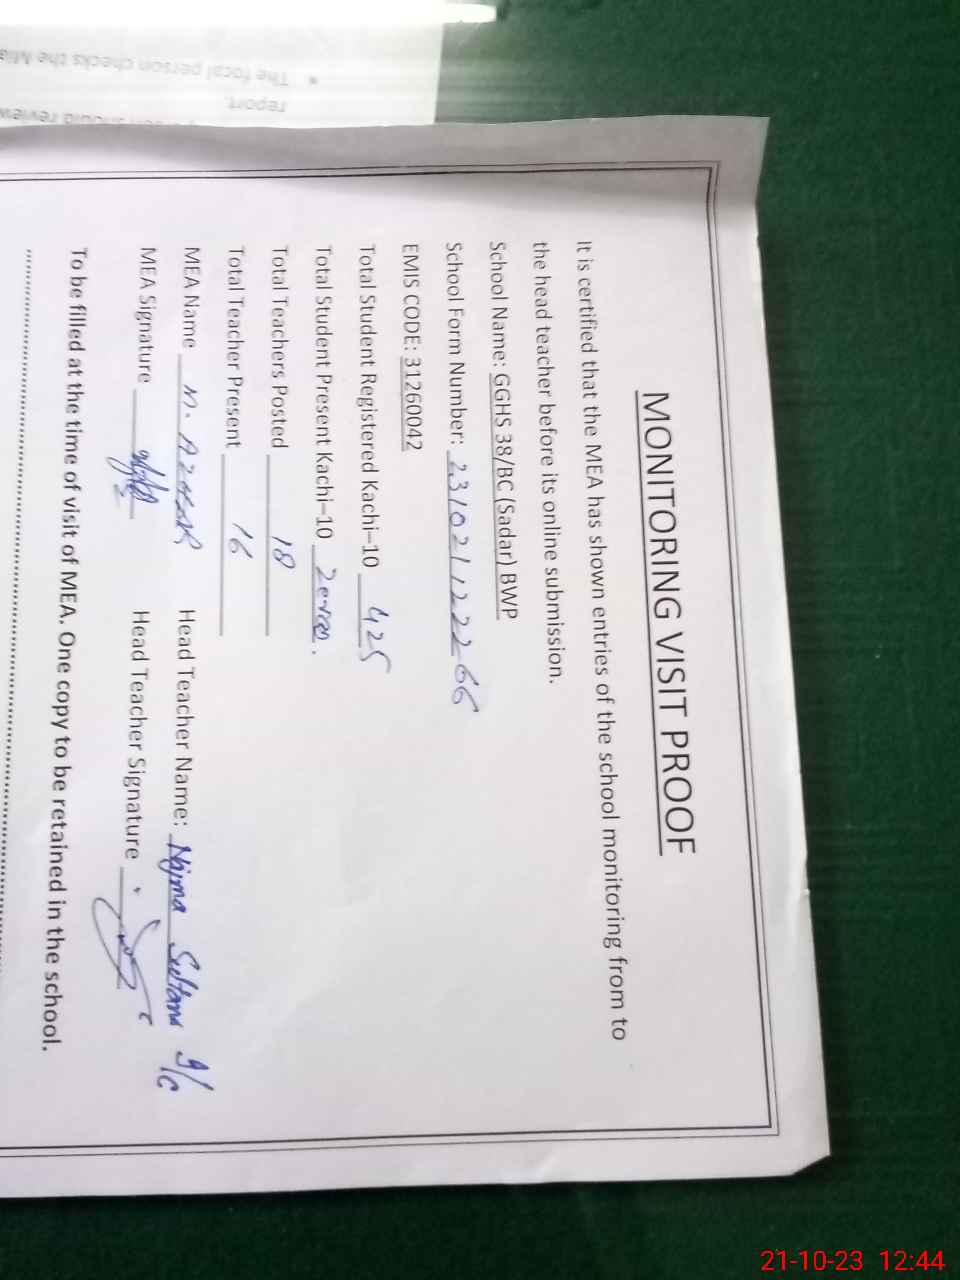 MONITORING VISIT PROOF
It is certified that the MEA has shown entries of the school monitoring from to
the head teacher before its online submission.
School Name: GGHS 38/BC (Sadar) BWP
School Form Number: 231021122266
EMIS CODE: 31260042
Total Student Registered Kachi–10 425
Total Student Present Kachi–10 Zero
Total Teachers Posted 18
Total Teacher Present 16
MEA Name M. Azhar Head Teacher Name: Najma Sultana I/C
MEA Signature Head Teacher Signature
To be filled at the time of visit of MEA. One copy to be retained in the school.
The focal person checks the
report.
should review
21-10-23 12:44